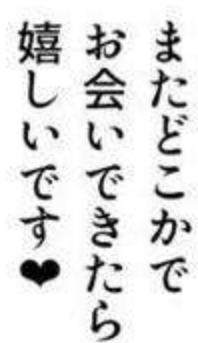 またどこかで
お会いできたら
嬉しいです❤